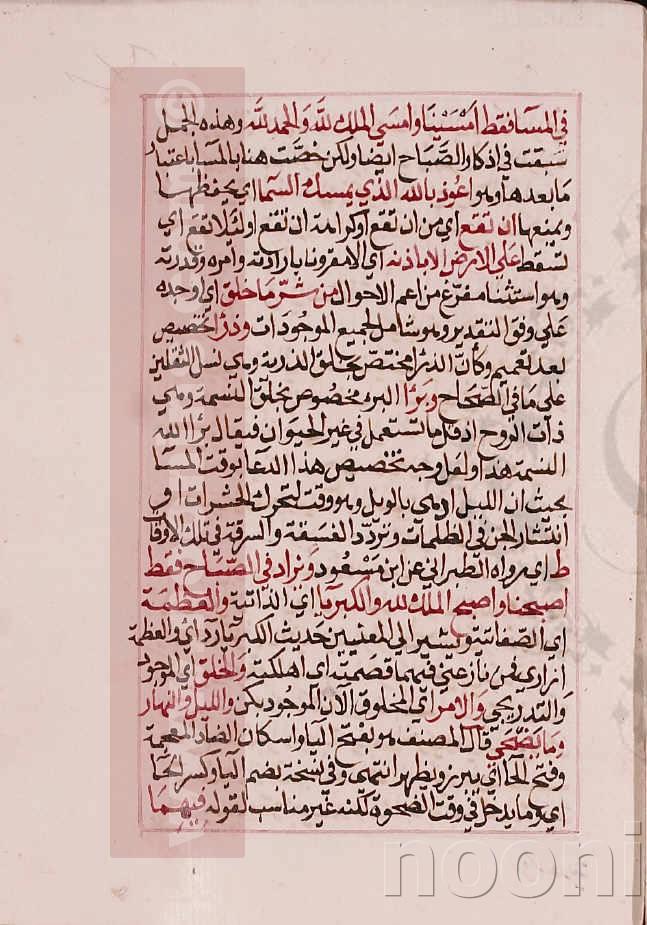 في المسا فقط امسينا وامسي الملك لله والحمد لله وهذه الجمل
سبقت في اذكار الصباح ايضا ولكن خصت هنا بالمسا باعتبار
ما بعدها وهو اعوذ بالله الذي يمسك السما اي يحفظها
ويمنعها ان تقع اي من ان تقع او كراهة ان تقع او لئلا تقع اي
تسقط علي الارض الا باذنه اي الا مقرونا بارادته وامره وقدرته
وهو استثنا مفرغ من اعم الاحوال من شر ما خلق اي اوجده
علي وفق التقدير وهو شامل لجميع الموجودات وذرا تخصيص
بعد تعميم وكأن الذرا مختص بخلق الذرية وهي نسل الثقلين
علي ما في الصحاح وبرا البرء مخصوص بخلق النسمة وهي
ذات الروح اذ قلما تستعمل في غير الحيوان فيقال برا الله
النسمة هذا ولعل وجه تخصيص هذا الدعا بوقت المسا
بحيث ان الليل ادهي بالويل وهو وقت لتحرك الحشرات او
انتشار الجن في الظلمات وتردد الفسقة والسرقة في تلك الاوقات
ط اي رواه الطبراني عن ابن مسعود ونزاد في الصباح فقط
اصبحنا واصبح الملك لله والكبريا اي الذاتية والعظمة
اي الصفاتية ويشير الي المعنيين حديث الكبريا ردائي والعظمة
ازاري فمن نازعني فيهما قصمته اي اهلكته والخلق اي الموجود
والتدريجي والامر اي المخلوق الآن الموجود بكن والليل والنهار
وما يضحي قال المصنف هو بفتح اليا واسكان الضاد المعجمة
وفتح الحا اي يبرز ويظهر انتهي وفي نسخة بضم اليا وكسر الحا
اي وما يدخل في وقت الضحوة لكنه غير مناسب لقوله فيهما
noon